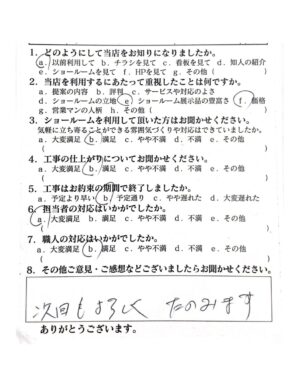 1. どのようにして当店をお知りになりましたか。
a. 以前利用して b. チラシを見て c. 看板を見て d. 知人の紹介
e. ショールームを見て f. HPを見て g. その他(
2. 当店を利用するにあたって重視したことは何ですか。
a. 提案の内容 b. 評判 c. サービスや対応のよさ
d. ショールームの立地 e. ショールーム展示品の豊富さ f. 価格
g. 営業マンの人柄 h. その他(
3. ショールームを利用して頂いた方はお聞かせください。
気軽に立ち寄ることができる雰囲気づくりや対応はできていましたか。
a. 大変満足 b. 満足 c. やや不満 d. 不満 e. その他
( )
4. 工事の仕上がりについてお聞かせください。
a. 大変満足 b. 満足 c. やや不満 d. 不満 e. その他
( )
5. 工事はお約束の期間で終了しましたか。
a. 予定より早い b. 予定通り c. やや遅れた d. 大変遅れた
6. 担当者の対応はいかがでしたか。
a. 大変満足 b. 満足 c. やや不満 d. 不満 e. その他
( )
7. 職人の対応はいかがでしたか。
a. 大変満足 b. 満足 c. やや不満 d. 不満 e. その他
( )
8. その他ご意見・ご感想などございましたらお聞かせください。
次回もよろしく たのみます
ありがとうございます。